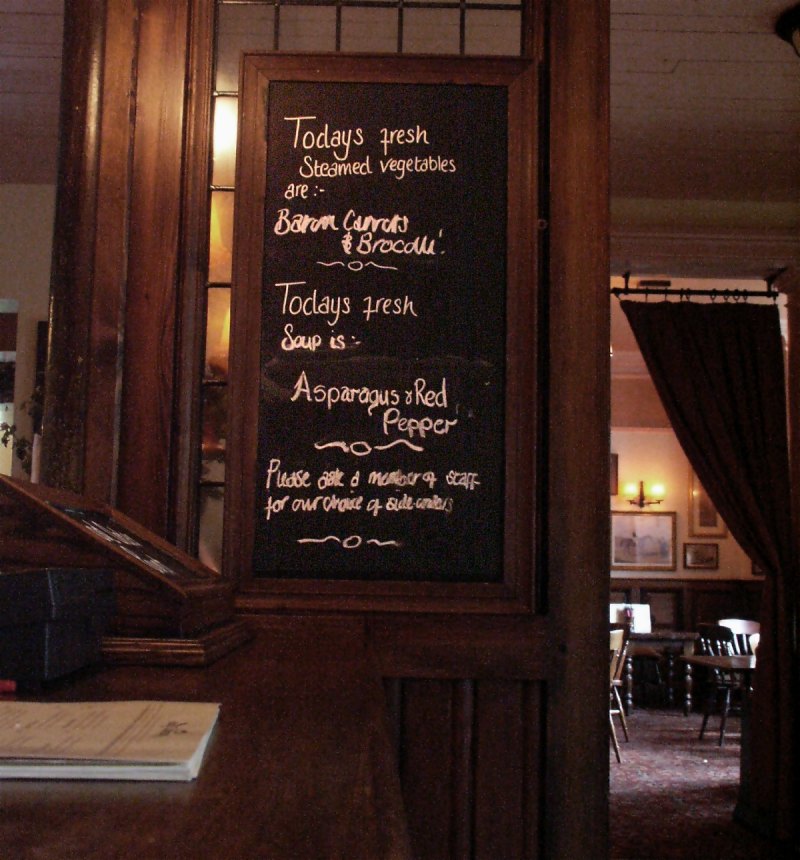 Todays fresh
Steamed vegetables
are :-
Baton Carrots
& Brocolli.
Todays fresh
Soup is :-
Asparagus & Red
Pepper
Please ask a member of staff
for our choice of side-orders